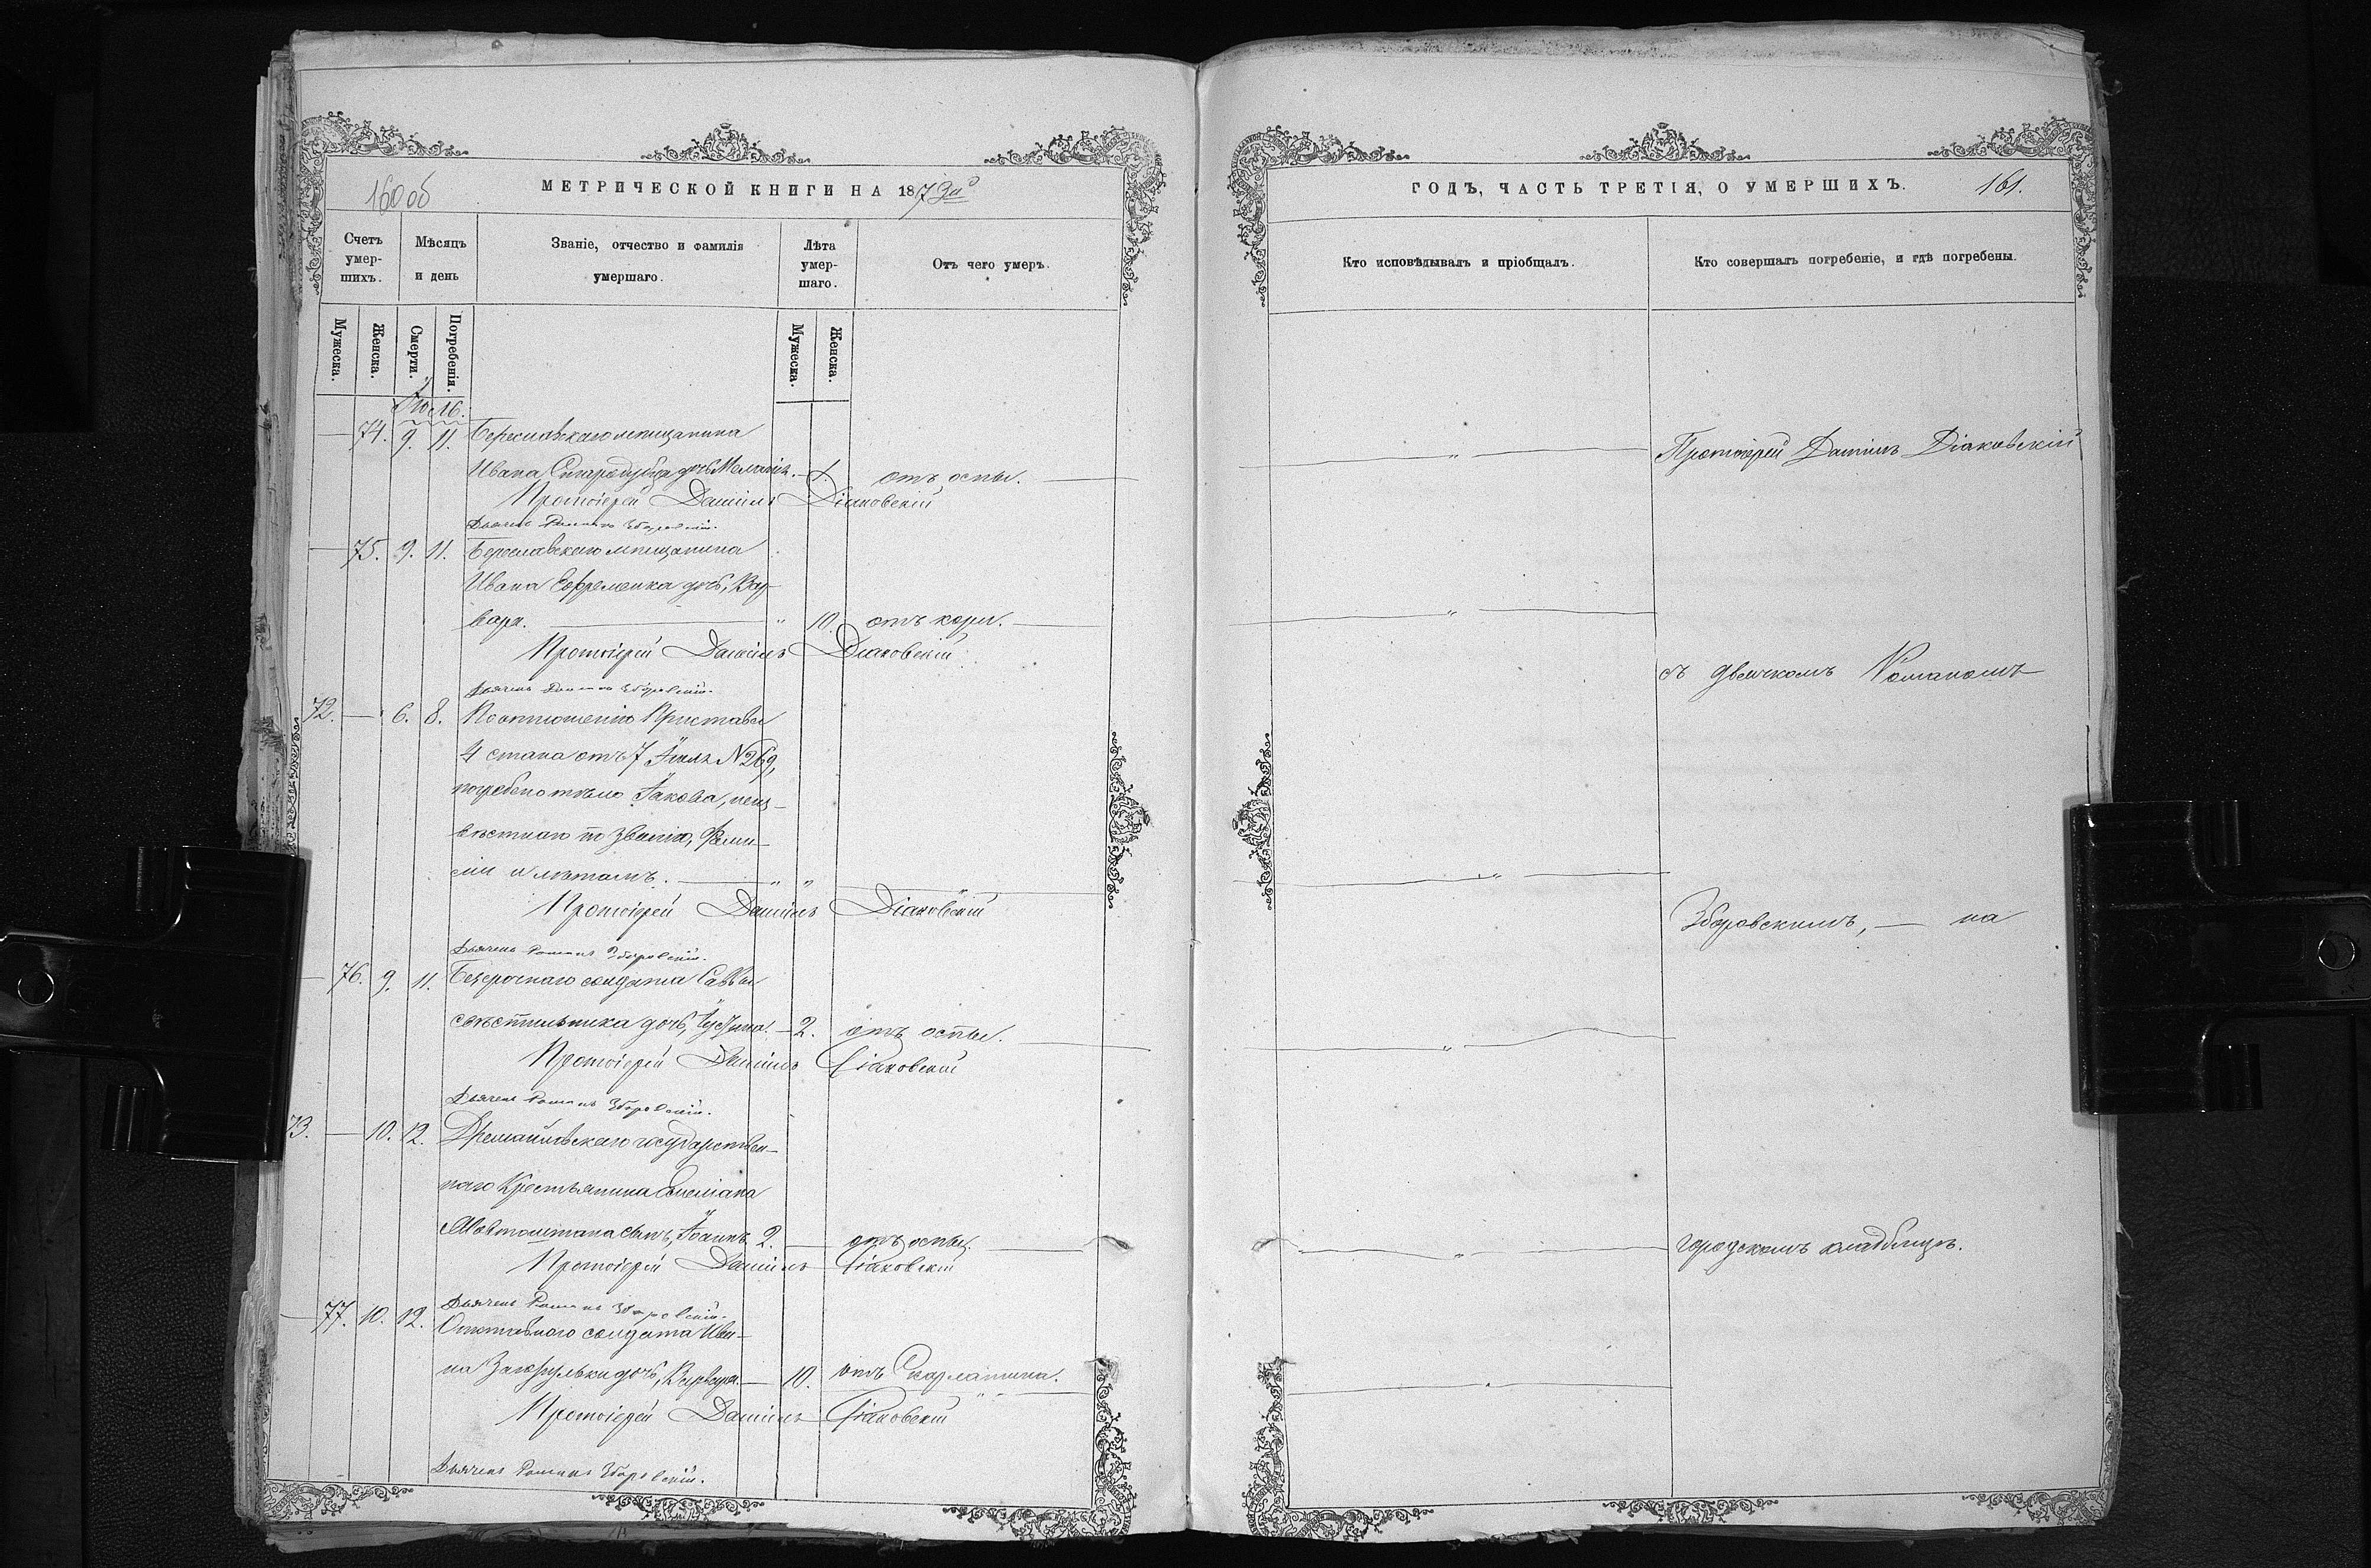 160 об
МЕТРИЧЕСКОЙ КНИГИ НА 187
Счетъ умер-шихъ.
Мѣсяцъ и день
Званіе, отчество и фамилія умершаго.
Лѣта умер-шаго.
Отъ чего умеръ.
Мужеска.
Женска.
Смерти.
Погребенія.
Мужеска.
Женска.
Іюль.
74. 9. 11. Береславскаго мѣщанина
Ивана Стародубца дочь 1. отъ оспы.
Протоіерей Даніилъ Діаковскій
Дьячекъ Романъ Зборовскій.
75. 9. 11. Береславскаго мѣщанина
Ивана Ефременка дочь, Вар-
вара. " 10 отъ кори.
Протоіерей Даніилъ Діаковскій
Дьячекъ Романъ Зборовскій.
72. 6. 8. По отношенію Пристава
4 стана отъ 7 Іюля №269,
погребено тѣло Іакова, неиз-
вѣстнаго по званію, фами-
ліи и лѣтамъ. " "
Протоіерей Даніилъ Діаковскій
Дьячекъ Романъ Зборовскій.
76. 9. 11. Безсрочнаго солдата Саввы
дочь, 2. отъ оспы.
Протоіерей Даніилъ Діаковскій
Дьячекъ Романъ Зборовскій.
73. 10. 12. государствен-
наго Крестьянина
сынъ, Іоаннъ 2. отъ оспы.
Протоіерей Даніилъ Діаковскій
Дьячекъ Романъ Зборовскій.
77. 10. 12. Отставнаго солдата Ива-
на дочь, Варвара. 10. отъ Скарлатина.
Протоіерей Даніилъ Діаковскій
Дьячекъ Романъ Зборовскій.
ГОДЪ, ЧАСТЬ ТРЕТІЯ, О УМЕРШИХЪ.
161.
Кто исповѣдывалъ и пріобщалъ.
Кто совершалъ погребеніе, и гдѣ погребены.
Протоіерей Даніилъ Діаковскій
съ дьячкомъ Романомъ
Зборовскимъ, — на
городскомъ кладбищѣ.